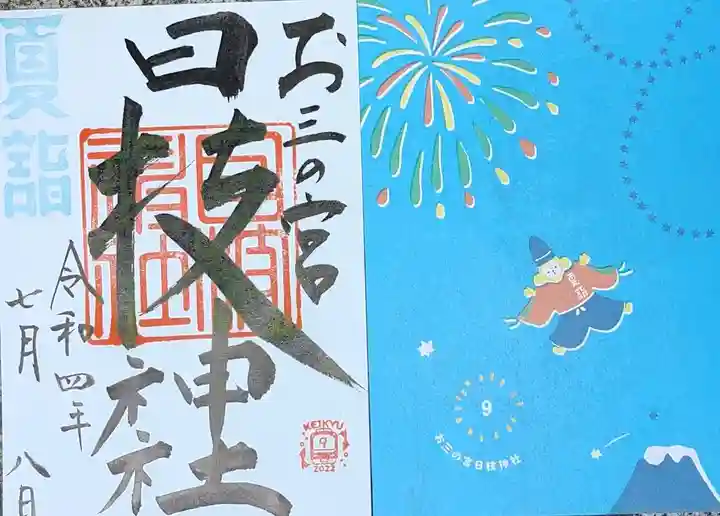 お三の宮
日枝神社
夏詣
令和四年
七月
八日
KEIKYU
9
2022
9
お三の宮日枝神社